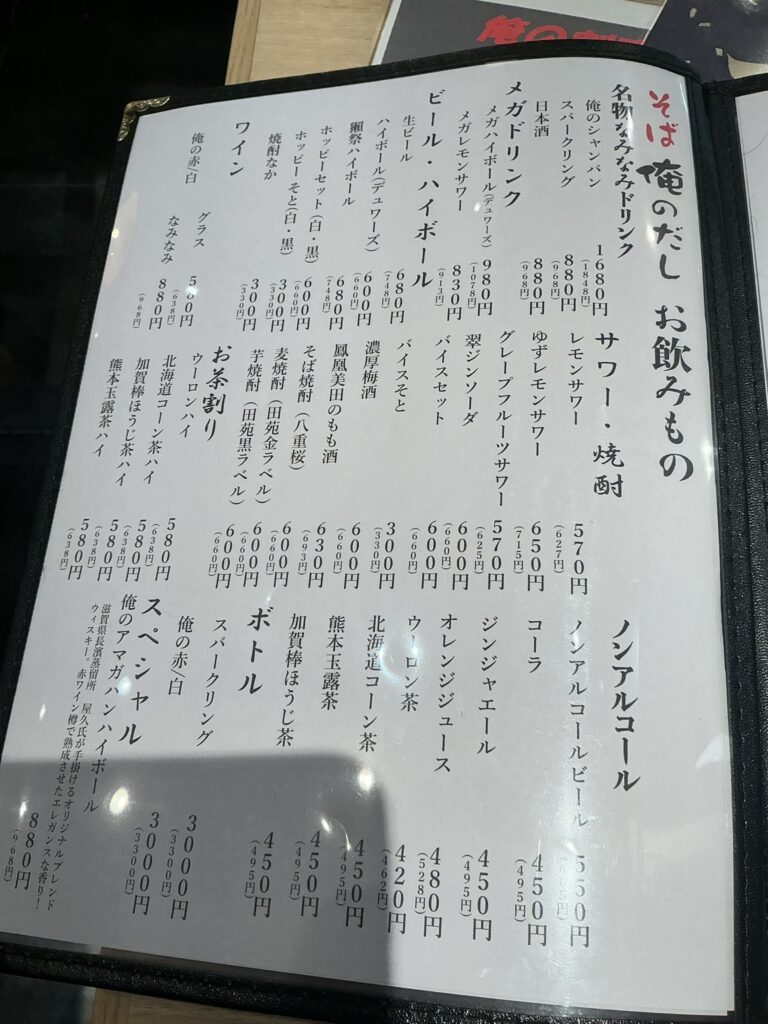 俺の
そば 俺のだし お飲みもの
名物なみなみドリンク
俺のシャンパン 1680円 (1848円)
スパークリング 880円 (968円)
日本酒 880円 (968円)
メガドリンク
メガハイボール(デュワーズ) 980円 (1078円)
メガレモンサワー 830円 (913円)
ビール・ハイボール
生ビール 680円 (748円)
ハイボール(デュワーズ) 600円 (660円)
獺祭ハイボール 680円 (748円)
ホッピーセット(白・黒) 600円 (660円)
ホッピーそと(白・黒) 300円 (330円)
焼酎なか 300円 (330円)
ワイン
俺の赤/白
グラス 580円 (638円)
なみなみ 880円 (968円)
サワー・焼酎
レモンサワー 570円 (627円)
ゆずレモンサワー 650円 (715円)
グレープフルーツサワー 570円 (625円)
翠ジンソーダ 600円 (660円)
バイスセット 600円 (660円)
バイスそと 300円 (330円)
濃厚梅酒 600円 (660円)
鳳凰美田のもも酒 630円 (693円)
そば焼酎(八重桜) 600円 (660円)
麦焼酎(田苑金ラベル) 600円 (660円)
芋焼酎(田苑黒ラベル) 600円 (660円)
お茶割り
ウーロンハイ 580円 (638円)
北海道コーン茶ハイ 580円 (638円)
加賀棒ほうじ茶ハイ 580円 (638円)
熊本玉露茶ハイ 580円 (638円)
ノンアルコール
ノンアルコールビール 550円
コーラ 450円 (495円)
ジンジャエール 450円 (495円)
オレンジジュース 480円 (528円)
ウーロン茶 420円 (462円)
北海道コーン茶 450円 (495円)
熊本玉露茶 450円 (495円)
加賀棒ほうじ茶 450円 (495円)
ボトル
スパークリング 3000円 (3300円)
俺の赤/白 3000円 (3300円)
スペシャル
俺のアマガハンハイボール 880円 (968円)
滋賀県長濱蒸留所 屋久氏が手掛けるオリジナルブレンド
ウィスキー。赤ワイン樽で熟成させたエレガンスな香り!